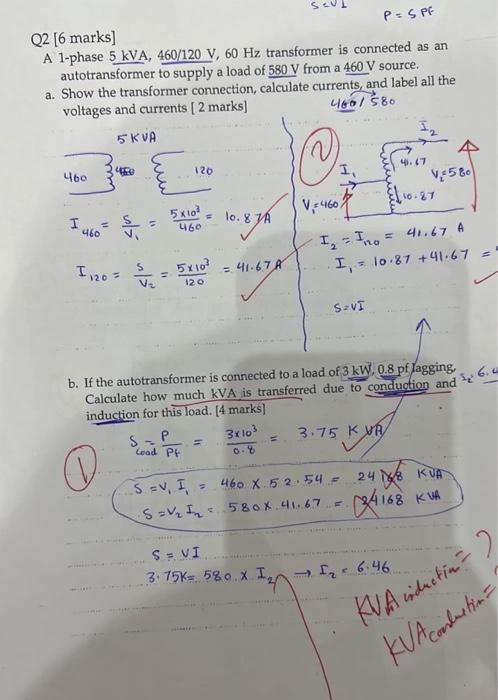 S=VI
P = S PF
Q2 [6 marks]
A 1-phase 5 kVA, 460/120 V, 60 Hz transformer is connected as an
autotransformer to supply a load of 580 V from a 460 V source.
a. Show the transformer connection, calculate currents, and label all the
voltages and currents [ 2 marks]
460/580
5 KVA
2
I2
460
120
I1
41.67
V2=580
V1=460
10.87
I460 = S/V1 = 5x10³/460 = 10.87A
I2 = I120 = 41.67 A
I120 = S/V2 = 5x10³/120 = 41.67A
I1 = 10.87 + 41.67 =
S=VI
b. If the autotransformer is connected to a load of 3 kW, 0.8 pf lagging,
Calculate how much kVA is transferred due to conduction and
induction for this load. [4 marks]
1
S Load = P/Pf = 3x10³/0.8 = 3.75 KVA
S = V1 I1 = 460 x 52.54 = 24168 KVA
S = V2 I2 = 580 x 41.67 = 24168 KVA
S = VI
3.75K = 580 x I2 → I2 = 6.46
KVA induction = ?
KVA conduction =